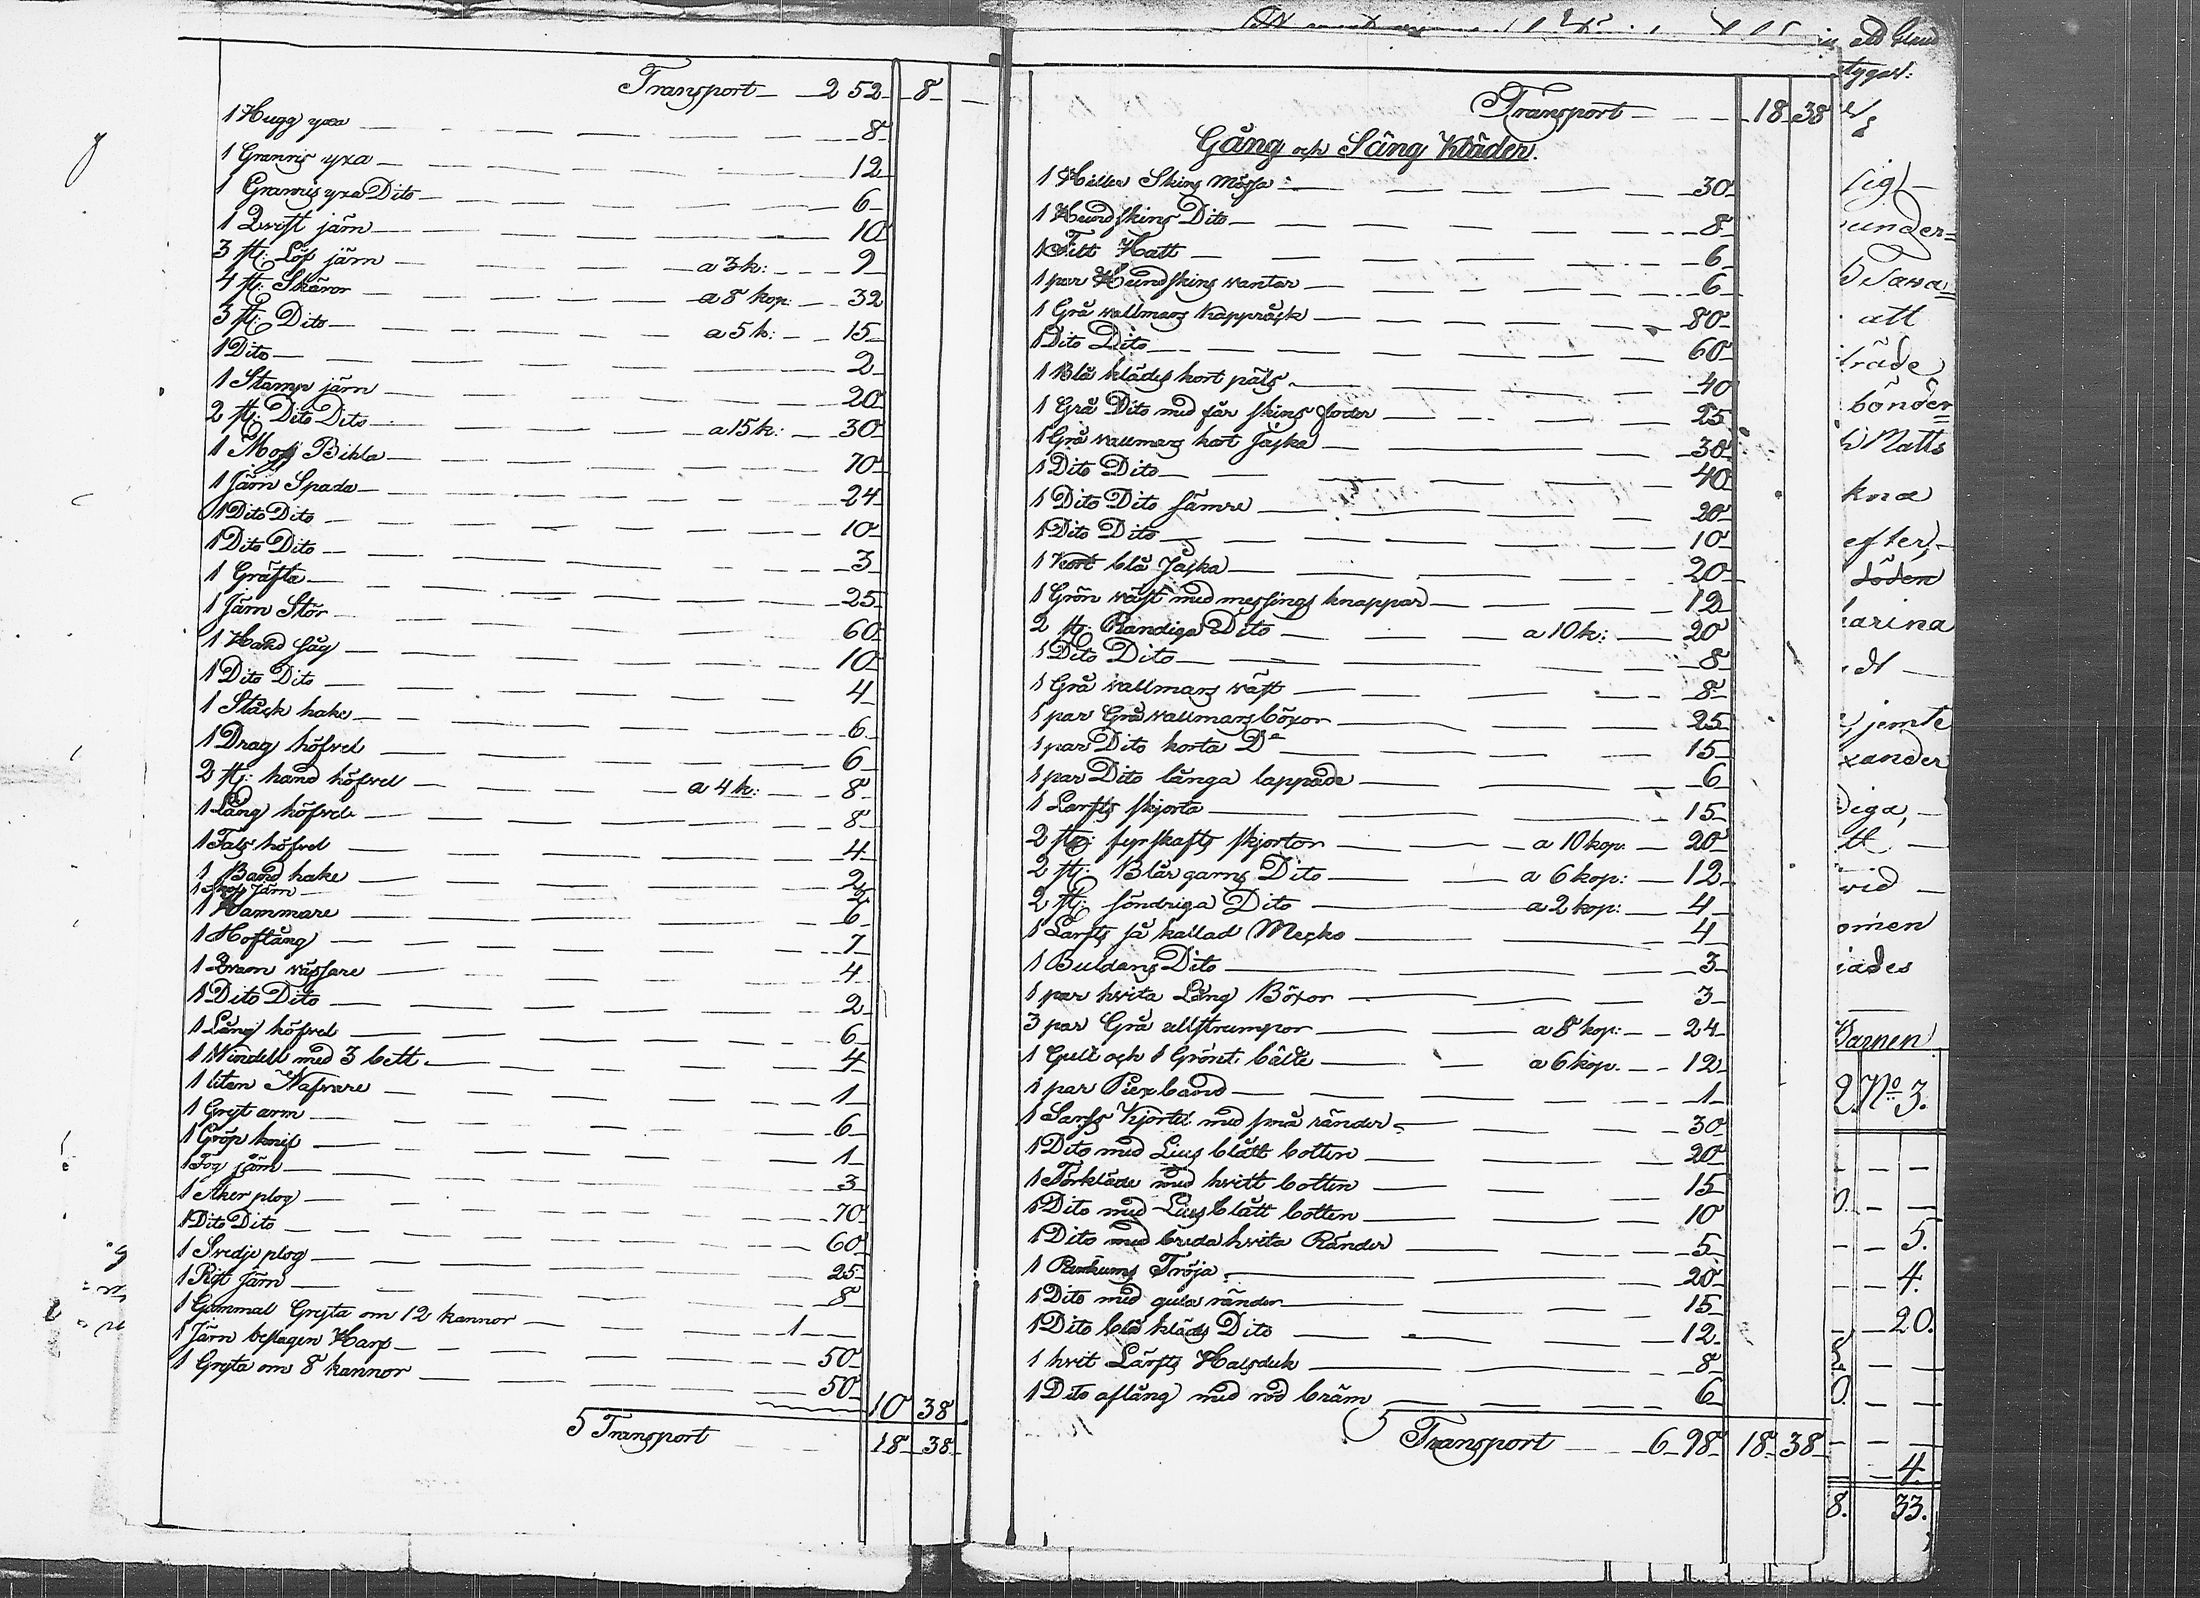 Transport 2 52 8
1 Hugg yxa 8
1 Grannis yxa 12
1 Grannis yxa Dito 6
1 Qvist järn 10
3 st: Löf järn a 3 k: 9
4 st: Skäror a 8 kop: 32
3 st: Dito a 5 k: 15
1 Dito 2
1 Stamp järn 20
2 st: Dito Dito a 15 k: 30
1 Moss Bikla 70
1 Järn Spada 24
1 Dito Dito 10
1 Dito Dito 3
1 Gräfta 25
1 Järn Stör 60
1 Hand såg 10
1 Dito Dito 4
1 Stäck hake 6
1 Drag höfvel 6
2 st: hand höfvel a 4 k: 8
1 Lång höfvel 8
1 Fals höfvel 4
1 Band hake 2
1 Skop Järn
1 Hammare 6
1 Hoftång 7
1 Qvarn vässare 4
1 Dito Dito 2
1 Lång höfvel 6
1 Windell med 3 bett 4
1 liten Nafvare 1
1 Gryt arm 6
1 Gröp knif 1
1 Fog järn 3
1 Åker plog 70
1 Dito Dito 60
1 Svedje plog 25
1 Rist Järn 8
1 Gammal Gryta om 12 kannor 1
1 Järn beslagen Harf 50
1 Gryta om 8 kannor 50
10 38
5 Transport 18 38
Transport 18 38
Gång och Säng Kläder.
1 Skins Mössa 30
1 Hundskins Dito 8
1 Filt Hatt 6
1 par Hundskins vantar 6
1 Grå vallmans kappråck 80
1 Dito Dito 60
1 Blå klädes kort päls 40
1 Grå Dito med får skins foder 25
1 Grå vallmans kort Jäska 30
1 Dito Dito 40
1 Dito Dito sämre 20
1 Dito Dito 10
1 Kort blå Jäska 20
1 Grön väst med messings knappar 12
2 st: Randiga Dito a 10 k: 20
1 Dito Dito 8
1 Grå vallmans väst 8
1 par Grå vallmans böxor 25
1 par Dito korta Do 15
1 par Dito långa lappade 6
1 Larfts skjorta 15
2 st: fyrskafts skjortor a 10 kop: 20
2 st: Blår garns Dito a 6 kop: 12
2 st: söndriga Dito a 2 kop: 4
1 Larfts så kallad Mesko 4
1 Buldans Dito 3
1 par hvita Lång Böxor 3
3 par Grå ullstrumpor a 8 kop: 24
1 Gult och 1 Grönt bälte a 6 kop. 12
1 par Piexband 1
1 Sarfs Kjortel med små ränder 30
1 Dito med Lius blått botten 20
1 Förkläde med hvitt botten 15
1 Dito med Lius blått botten 10
1 Dito med breda hvita Ränder 5
1 Ramkums Tröja 20
1 Dito med gula ränder 15
1 Dito blå kläds Dito 12
1 hvit Lärfts Halsduk 8
1 Dito aflång med röd bräm 6
5 Transport 6 98 18 38
tygar:
sig
under=
att
träde
bönder
Matts
kna
efter
döden
arina
jemte
xander
diga,
tt
vid
omen
iades
Barnen
2. No 3.
5.
4.
20.
4.
8. 33.